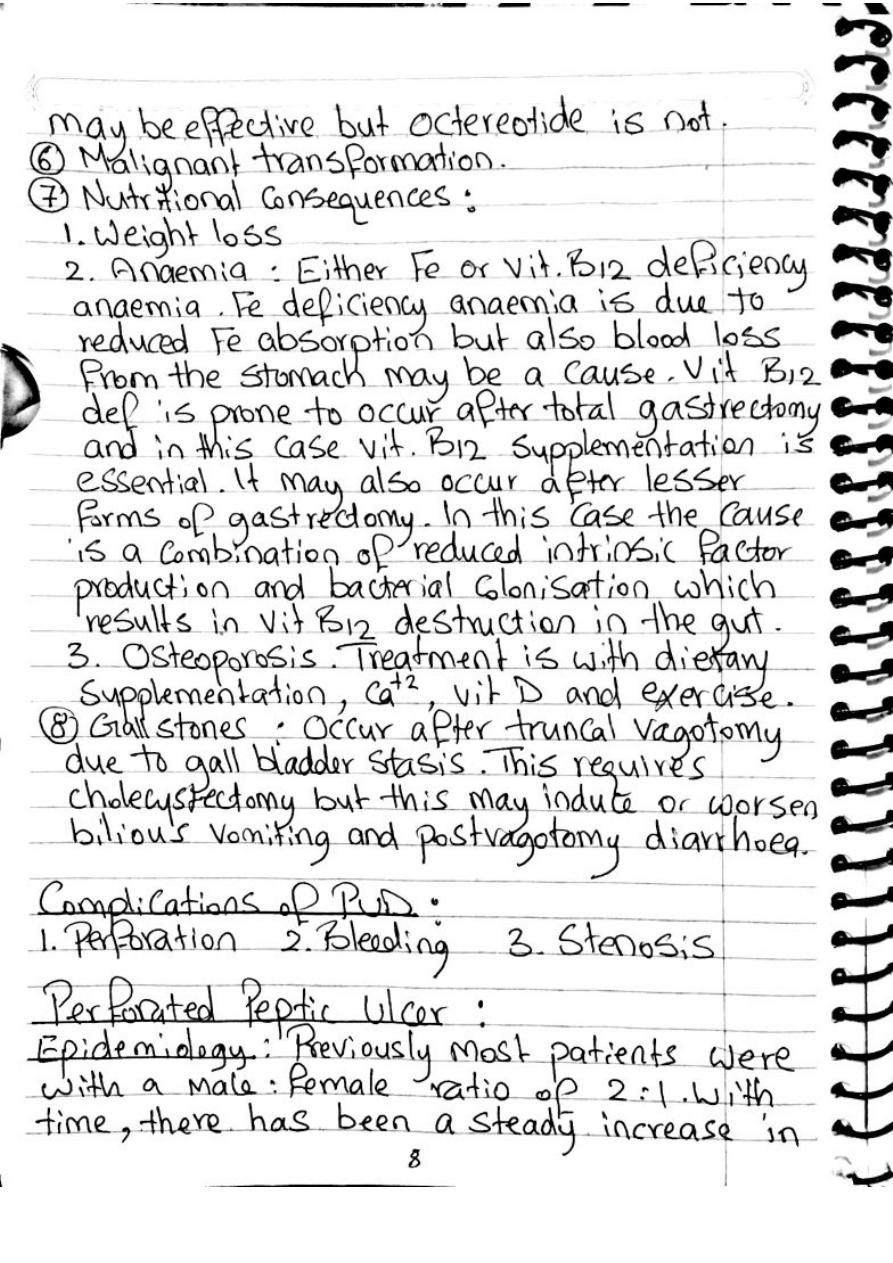 may be effective but octereotide is not.
⑥ Malignant transformation.
⑦ Nutritional Consequences :
1. Weight loss
2. Anaemia : Either Fe or Vit. B12 deficiency
anaemia. Fe deficiency anaemia is due to
reduced Fe absorption but also blood loss
from the stomach may be a cause. Vit B12
def is prone to occur after total gastrectomy
and in this case vit. B12 supplementation is
essential. It may also occur after lesser
forms of gastrectomy. In this case the cause
is a combination of reduced intrinsic factor
production and bacterial colonisation which
results in Vit B12 destruction in the gut.
3. Osteoporosis. Treatment is with dietary
supplementation, Ca+2, vit D and exercise.
⑧ Gall stones : Occur after truncal vagotomy
due to gall bladder stasis. This requires
cholecystectomy but this may indute or worsen
bilious vomiting and postvagotomy diarrhoea.
Complications of PUD :
1. Perforation 2. Bleeding 3. Stenosis
Perforated Peptic Ulcer :
Epidemiology : Previously most patients were
with a male : female ratio of 2:1. With
time, there has been a steady increase in
8